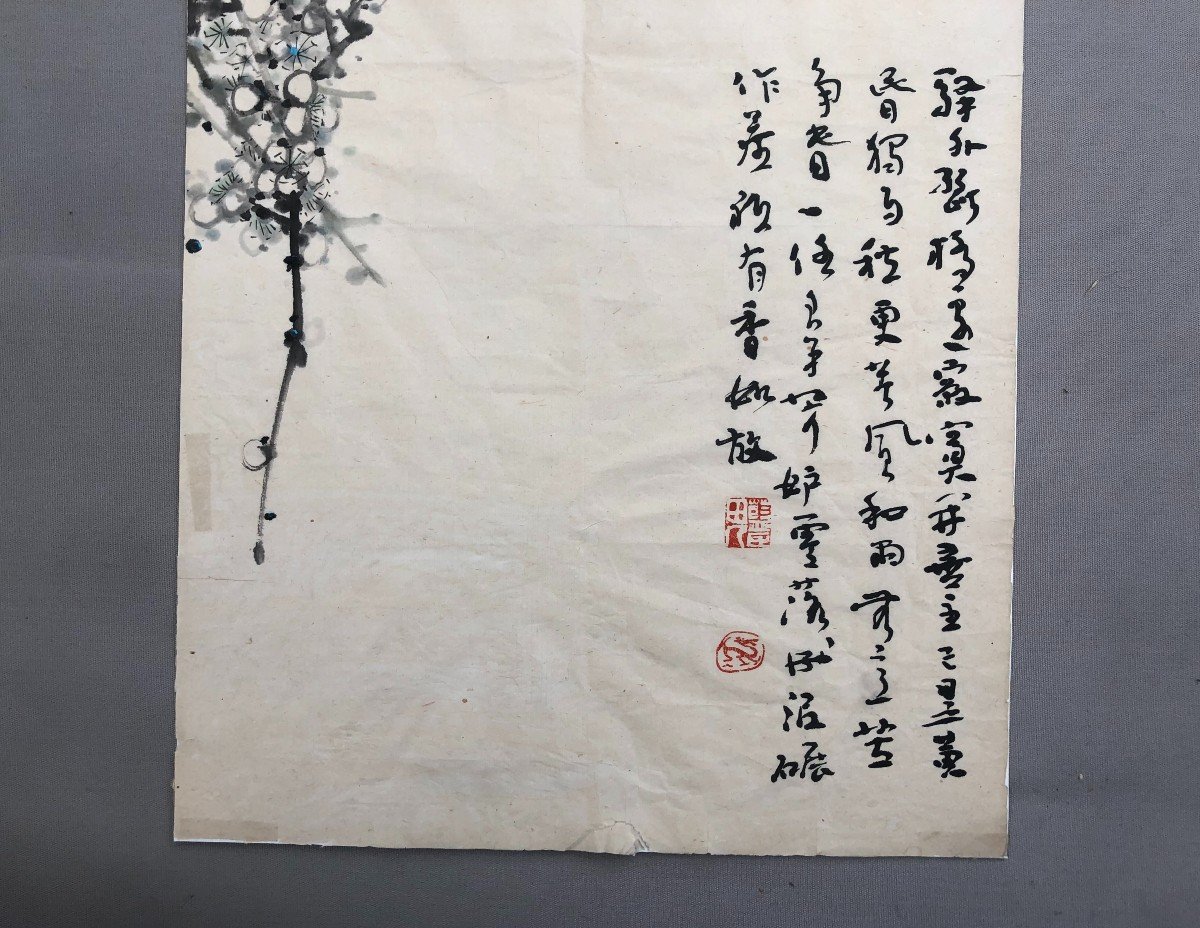 驛外斷橋邊寂寞開無主已是黃
昬獨自愁更著風和雨無意苦
爭春一任羣芳妒零落成泥碾
作塵祗有香如故